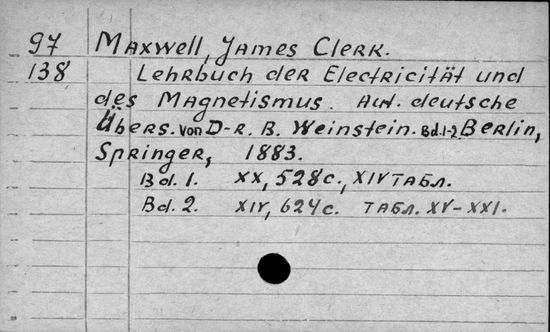 97 Maxwell, James Clerk.
138 Lehrbuch der Electricität und
des Magnetismus. Aut. deutsche
Übers. von D-r. B. Weinstein. Bd.1-2. Berlin,
Springer, 1883.
Bd. 1. XX, 528c., XIV табл.
Bd. 2. XIV, 624c. табл. XV-XXI.